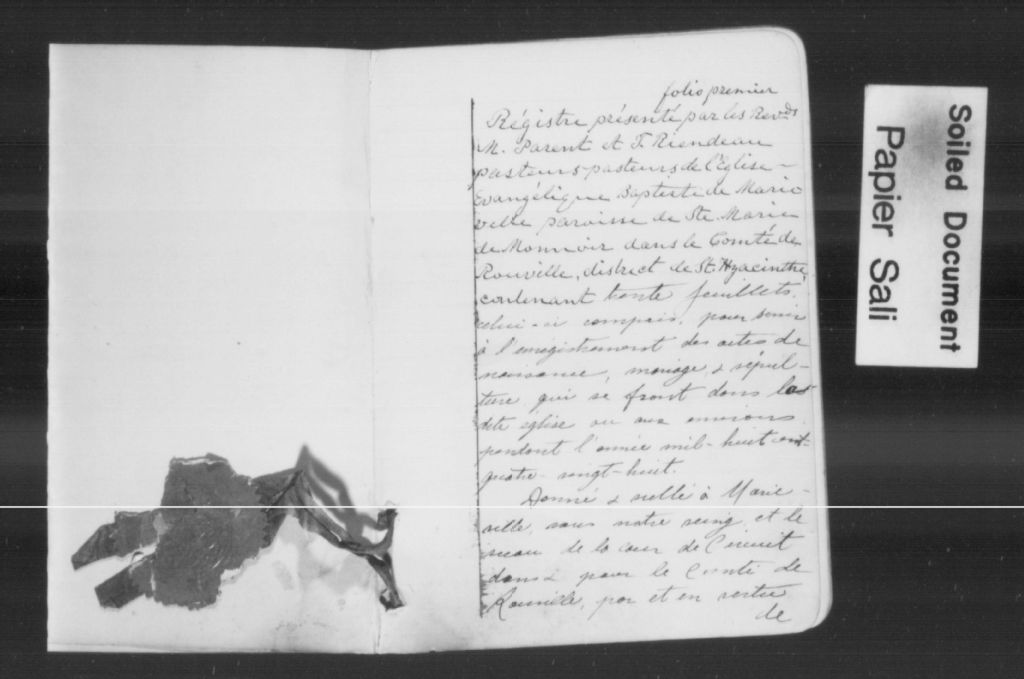 folio premier
Régistre présenté par les Revds
M. Parent et T. Riendeau
pasteurs-pasteurs de l'Eglise
Evangélique Baptiste de Marie
ville paroisse de Ste. Marie
de Monnoir dans le Comté de
Rouville, district de St. Hyacinthe,
contenant trente feuillets,
celui-ci compris, pour servir
à l'enregistrement des actes de
naissance, mariage, & sépul-
ture qui se feront dans la
dite église ou aux environs
pendant l'année mil-huit-cent-
quatre-vingt-huit.
Donné & scellé à Marie-
ville, sous notre seing, et le
sceau de la cour de Circuit
dans & pour le Comté de
Rouville, par et en vertu
de
Soiled Document
Papier Sali